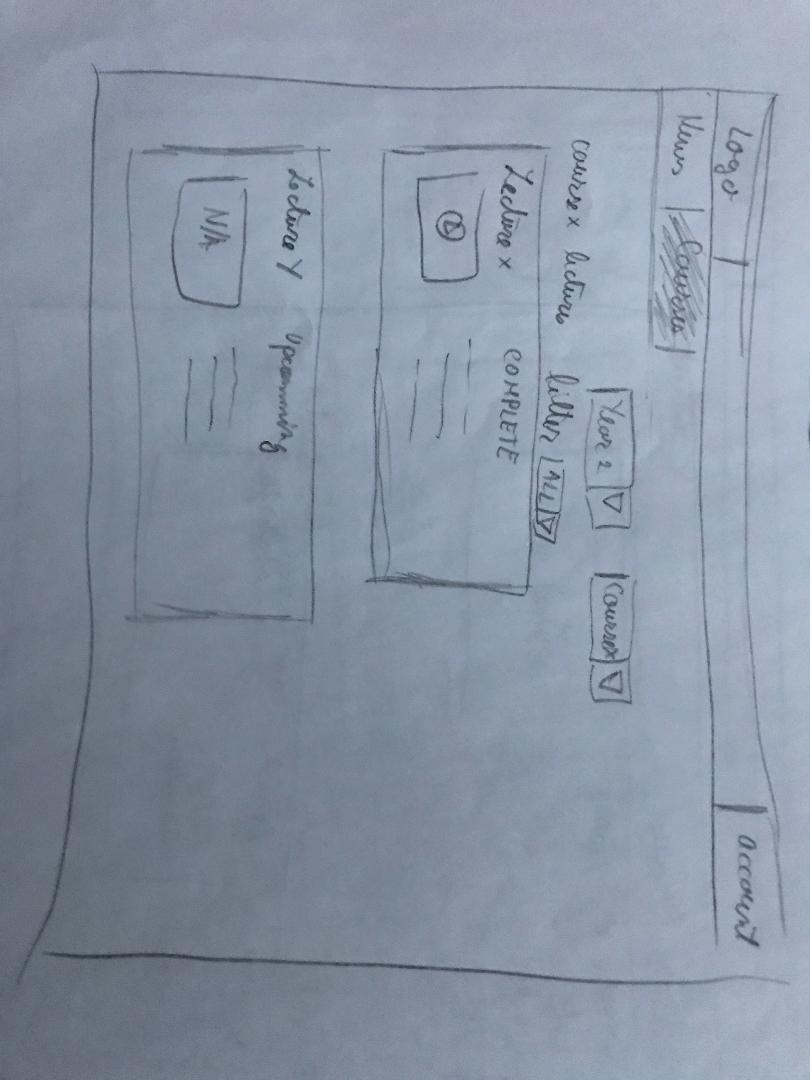 Logo account
News Courses
Year 2 Course x
course x lectures filter ALL
Lecture x COMPLETE
Lecture Y Upcomming
N/A